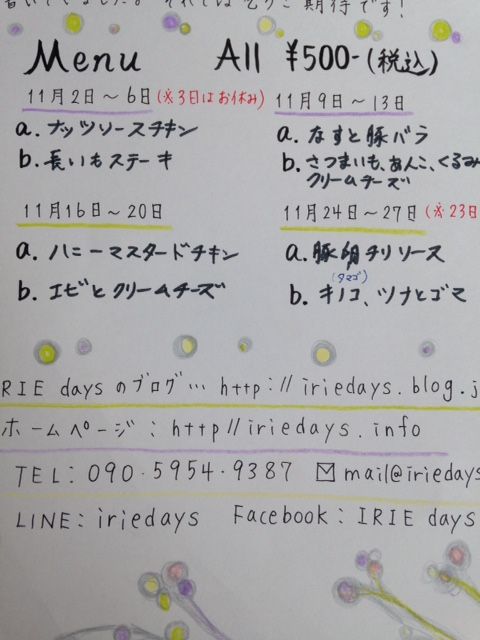 書いていました。それではどうご期待です！
Menu All ¥500-(税込)
11月2日〜6日(※3日はお休み)
a. ナッツソースチキン
b. 長いもステーキ
11月9日〜13日
a. なすと豚バラ
b. さつまいも、あんこ、くるみ
クリームチーズ
11月16日〜20日
a. ハニーマスタードチキン
b. エビとクリームチーズ
11月24日〜27日(※23日
a. 豚卵チリソース
(タマゴ)
b. キノコ、ツナとゴマ
RIE days のブログ… http://iriedays.blog.j
ホームページ：http//iriedays.info
TEL: 090・5954・9387 ✉mail@iriedays
LINE: iriedays Facebook: IRIE days